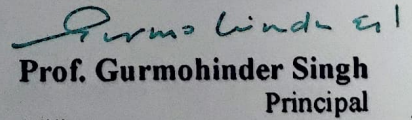 Gurmohinder
Prof. Gurmohinder Singh
Principal